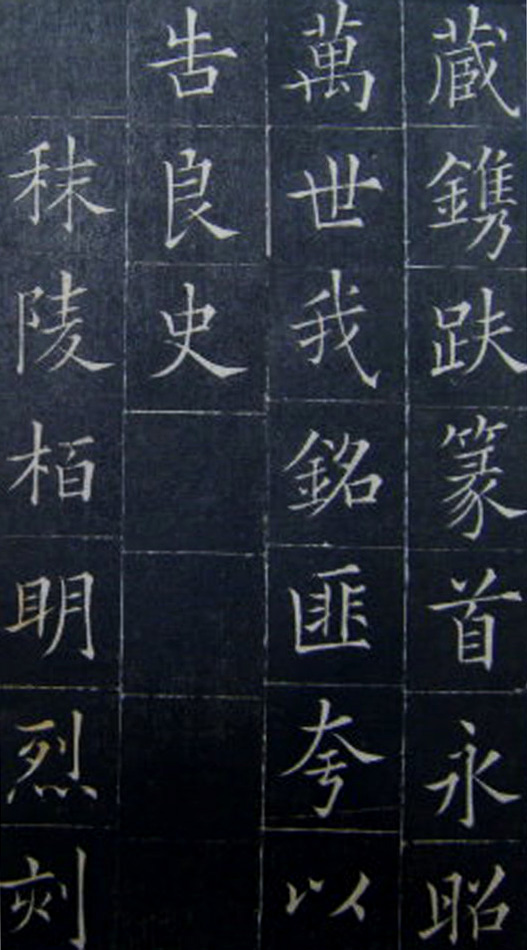 蔵鐫趺篆首永昭
萬世我銘匪夸以
告良史
秣陵栢明烈刻